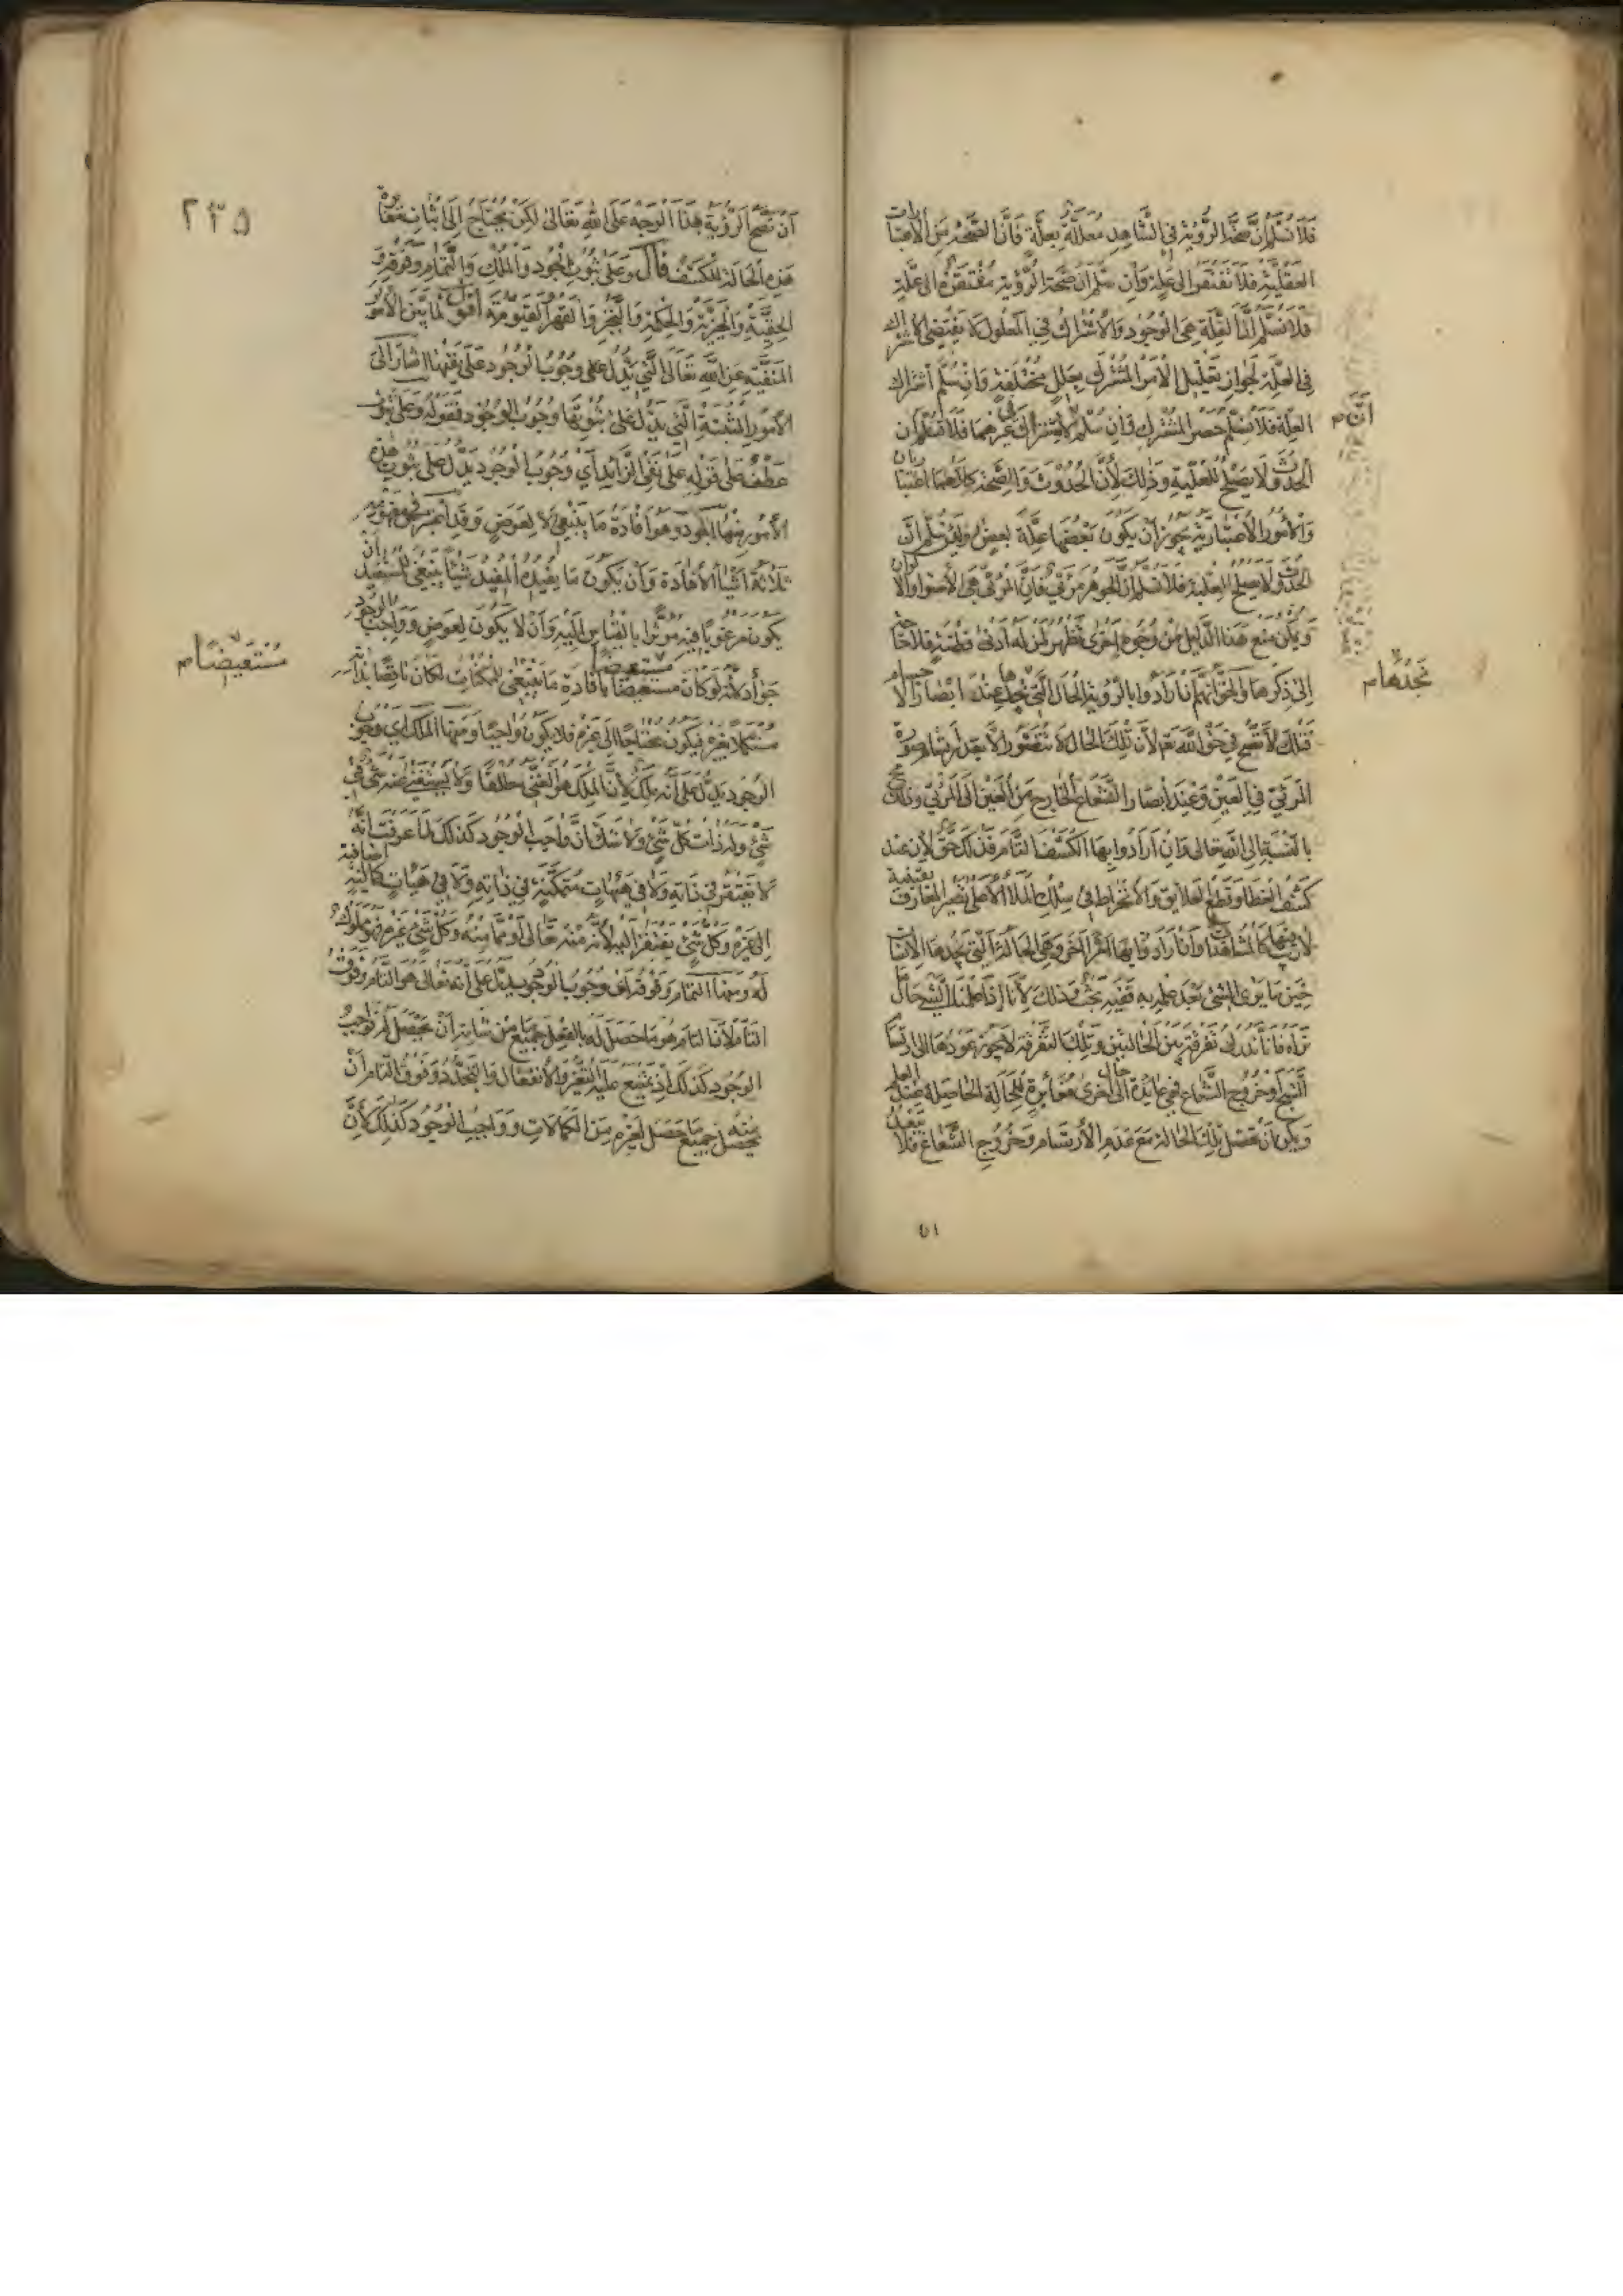 فلا نسلم ان صحة الرؤية في الشاهد معللة بعلة فان الصحة من الاعتبارات
العقلية فلا تفتقر الى علة وان سلم ان صحة الرؤية مفتقرة الى علة
فلا نسلم ان العلة هي الوجود والاشتراك في المعلول لا يقتضي الاشتراك
في العلة لجواز تعليل الامر المشترك بعلل مختلفة وان سلم اشتراك
العلة فلا نسلم حصر المشترك فان سلم الاشتراك في غيرهما فلا نسلم ان
الحدوث لا يصلح للعلية وذلك لأن الحدوث والصحة كلاهما اعتباريان
والأمور الاعتبارية يجوز أن يكون بعضها علة بعض ولئن سلم ان
الحدوث لا يصلح للعلية فلا نسلم ان الجوهر مرئي فان المرئي هي الاضواء والالوان
ويمكن منع هذا الدليل من وجوه اخرى تظهر لمن له ادنى فطنة فلا حاجة
الى ذكرها والحق انهم ان ارادوا بالرؤية الحال التي نجدها عند ابصارنا الاجسام
فذلك لا تصح في حق الله تعالى لأن تلك الحال لا تتصور الا بعد ارتسام صورة
المرئي في العين وعند ابصار الشعاع الخارج من العين الى المرئي وذلك محال
بالنسبة الى الله تعالى وان ارادوا بها الكشف التام فذلك حق لأن عند
كشف الغطاء وقطع العلايق والانخراط في سلك الملأ الأعلى تصير المعارف يقينية
لا ريب فيها كالمشاهدات وان ارادوا بها امرا آخر وهي الحالة التي نجدها الانسان
حين ما يرى الشئ بعد علمه به ففيه بحث وذلك لأنا اذا علمنا الشئ حال ما
نراه فانا ندرك تفرقة بين الحالتين وتلك التفرقة لا يجوز عودها الى ارتسام
الشبح أو خروج الشعاع فهي عايدة الى حال اخرى مغايرة للحالة الحاصلة عند العلم
ويمكن أن تحصل تلك الحالة مع عدم الارتسام وخروج الشعاع فلا يبعد
انه م
نجدها م
٥١
٢٣٥
أن تصح الرؤية بهذا الوجه على الله تعالى لكن يحتاج الى اثبات مغايرة
هذه الحالة للكشف قال وعلى ثبوت الجود والملك والتمام وفوقه و
الحقية والخيرية والحكمة والتجبر والقهر والقيومية اقول لما بين الأمور
المنفية عن الله تعالى التي يدل على وجوب الوجود على نفيها اشار الى
الأمور المثبتة التي يدل على ثبوتها وجوب الوجود فقوله وعلى ثبوت
عطف على قوله على نفي الزائد أي وجوب الوجود يدل على ثبوت هذه
الأمور منها الجود وهو افادة ما ينبغي لا لعوض وقد اعتبر في مفهومه
ثلاثة اشياء الافادة وأن يكون ما يفيده المفيد شيئا ينبغي للمستفيد أن
يكون مرغوبا فيه مؤثرا بالقياس اليه وأن لا يكون لعوض وواجب الوجود
جواد لأنه لو كان مستعيضا بافادة ما ينبغي للممكنات لكان ناقصا بذاته
مستكملا بغيره فيكون محتاجا الى غيره فلا يكون واجبا ومنها الملك اي وجوب
الوجود يدل على أنه ملك لأن الملك هو الغني مطلقا ولا يستغني عنه شئ في
شئ وله ذات كل شئ ولا شك ان واجب الوجود كذلك لما عرفت انه
لا يفتقر في ذاته ولا في هيئات متمكنة في ذاته ولا في هيئات كمالية اضافية
الى غيره وكل شئ يفتقر اليه لأنه منه تعالى أو مما منه وكل شئ غيره فهو مملوك
له ومنها التمام وفوقه أي وجوب الوجود يدل على أنه تعالى هو التام وفوق
التام لأن التام هو ما حصل له بالفعل جميع ما من شانه أن يحصل له وواجب
الوجود كذلك اذ يمتنع عليه التغير والانفعال والتجدد وفوق التام أن
يحصل منه جميع ما حصل لغيره من الكمالات وواجب الوجود كذلك لأن
مستعيضا م